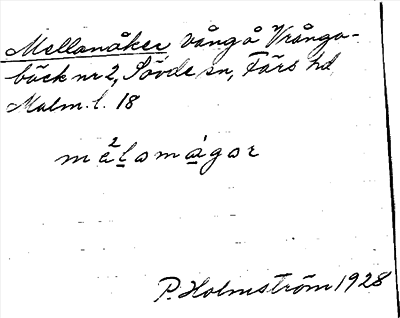 Mellanåker vång å Vrånga-
bäck nr 2, Sövde sn, Färs hd
Malm. l. 18
mȩ²lamågar
P. Holmström 1928